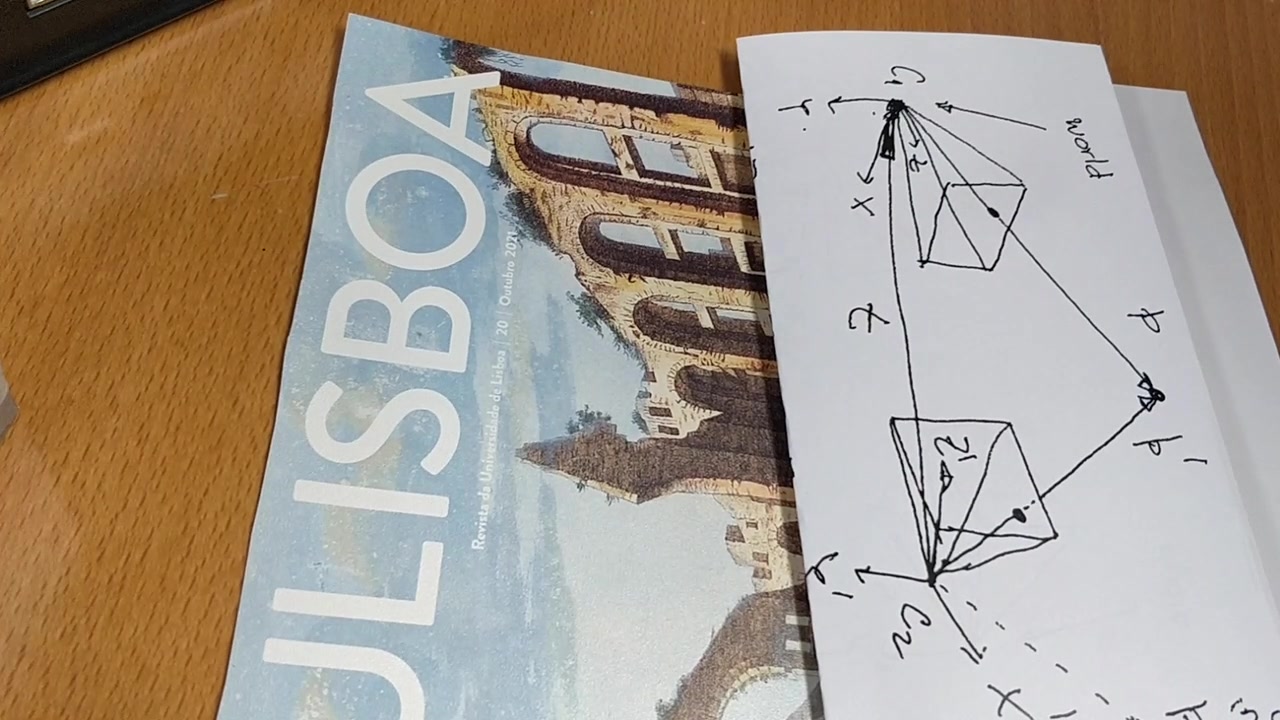 ULISBOA
Revista da Universidade de Lisboa | 20 | Outubro 2021
C1
world
Y
X
Z
p
p'
Z'
Y'
C2
X